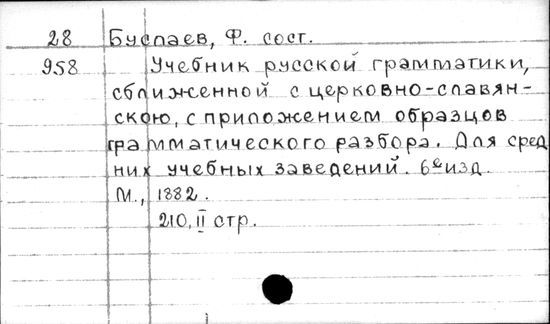 28 Буслаев, Ф. сост.
958 Учебник русской грамматики,
сближенной с церковно-славян-
скою, с приложением образцов
грамматического разбора. Для сред
них учебных заведений. 6е изд.
М., 1882.
210, II стр.